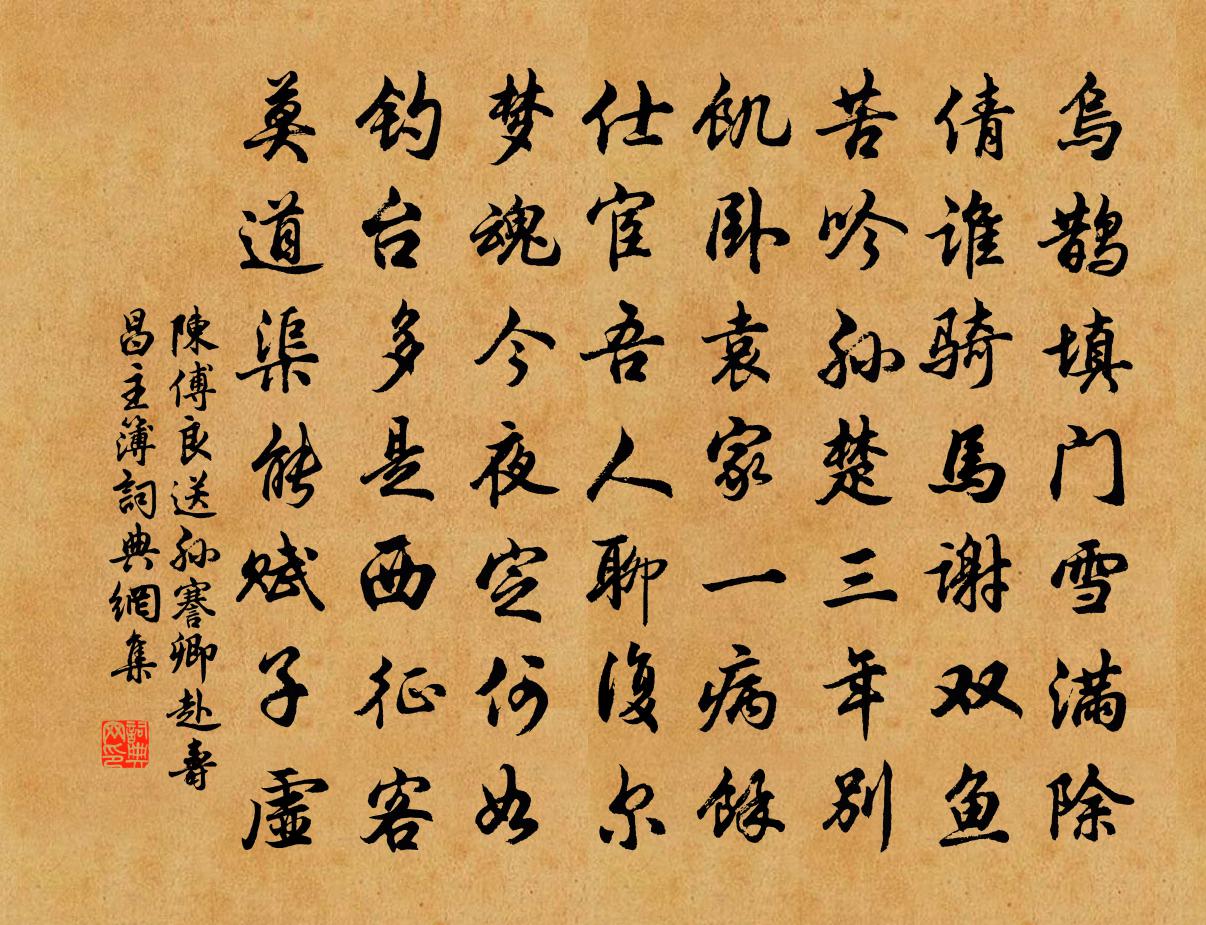 乌鹊填门雪满除
倩谁骑马谢双鱼
苦吟孙楚三年别
饥卧袁家一病馀
仕宦吾人聊复尔
梦魂今夜定何如
钓台多是西征客
莫道渠能赋子虚
陳傅良送孙謇卿赴壽
昌主簿詞典網集
詞典
网印